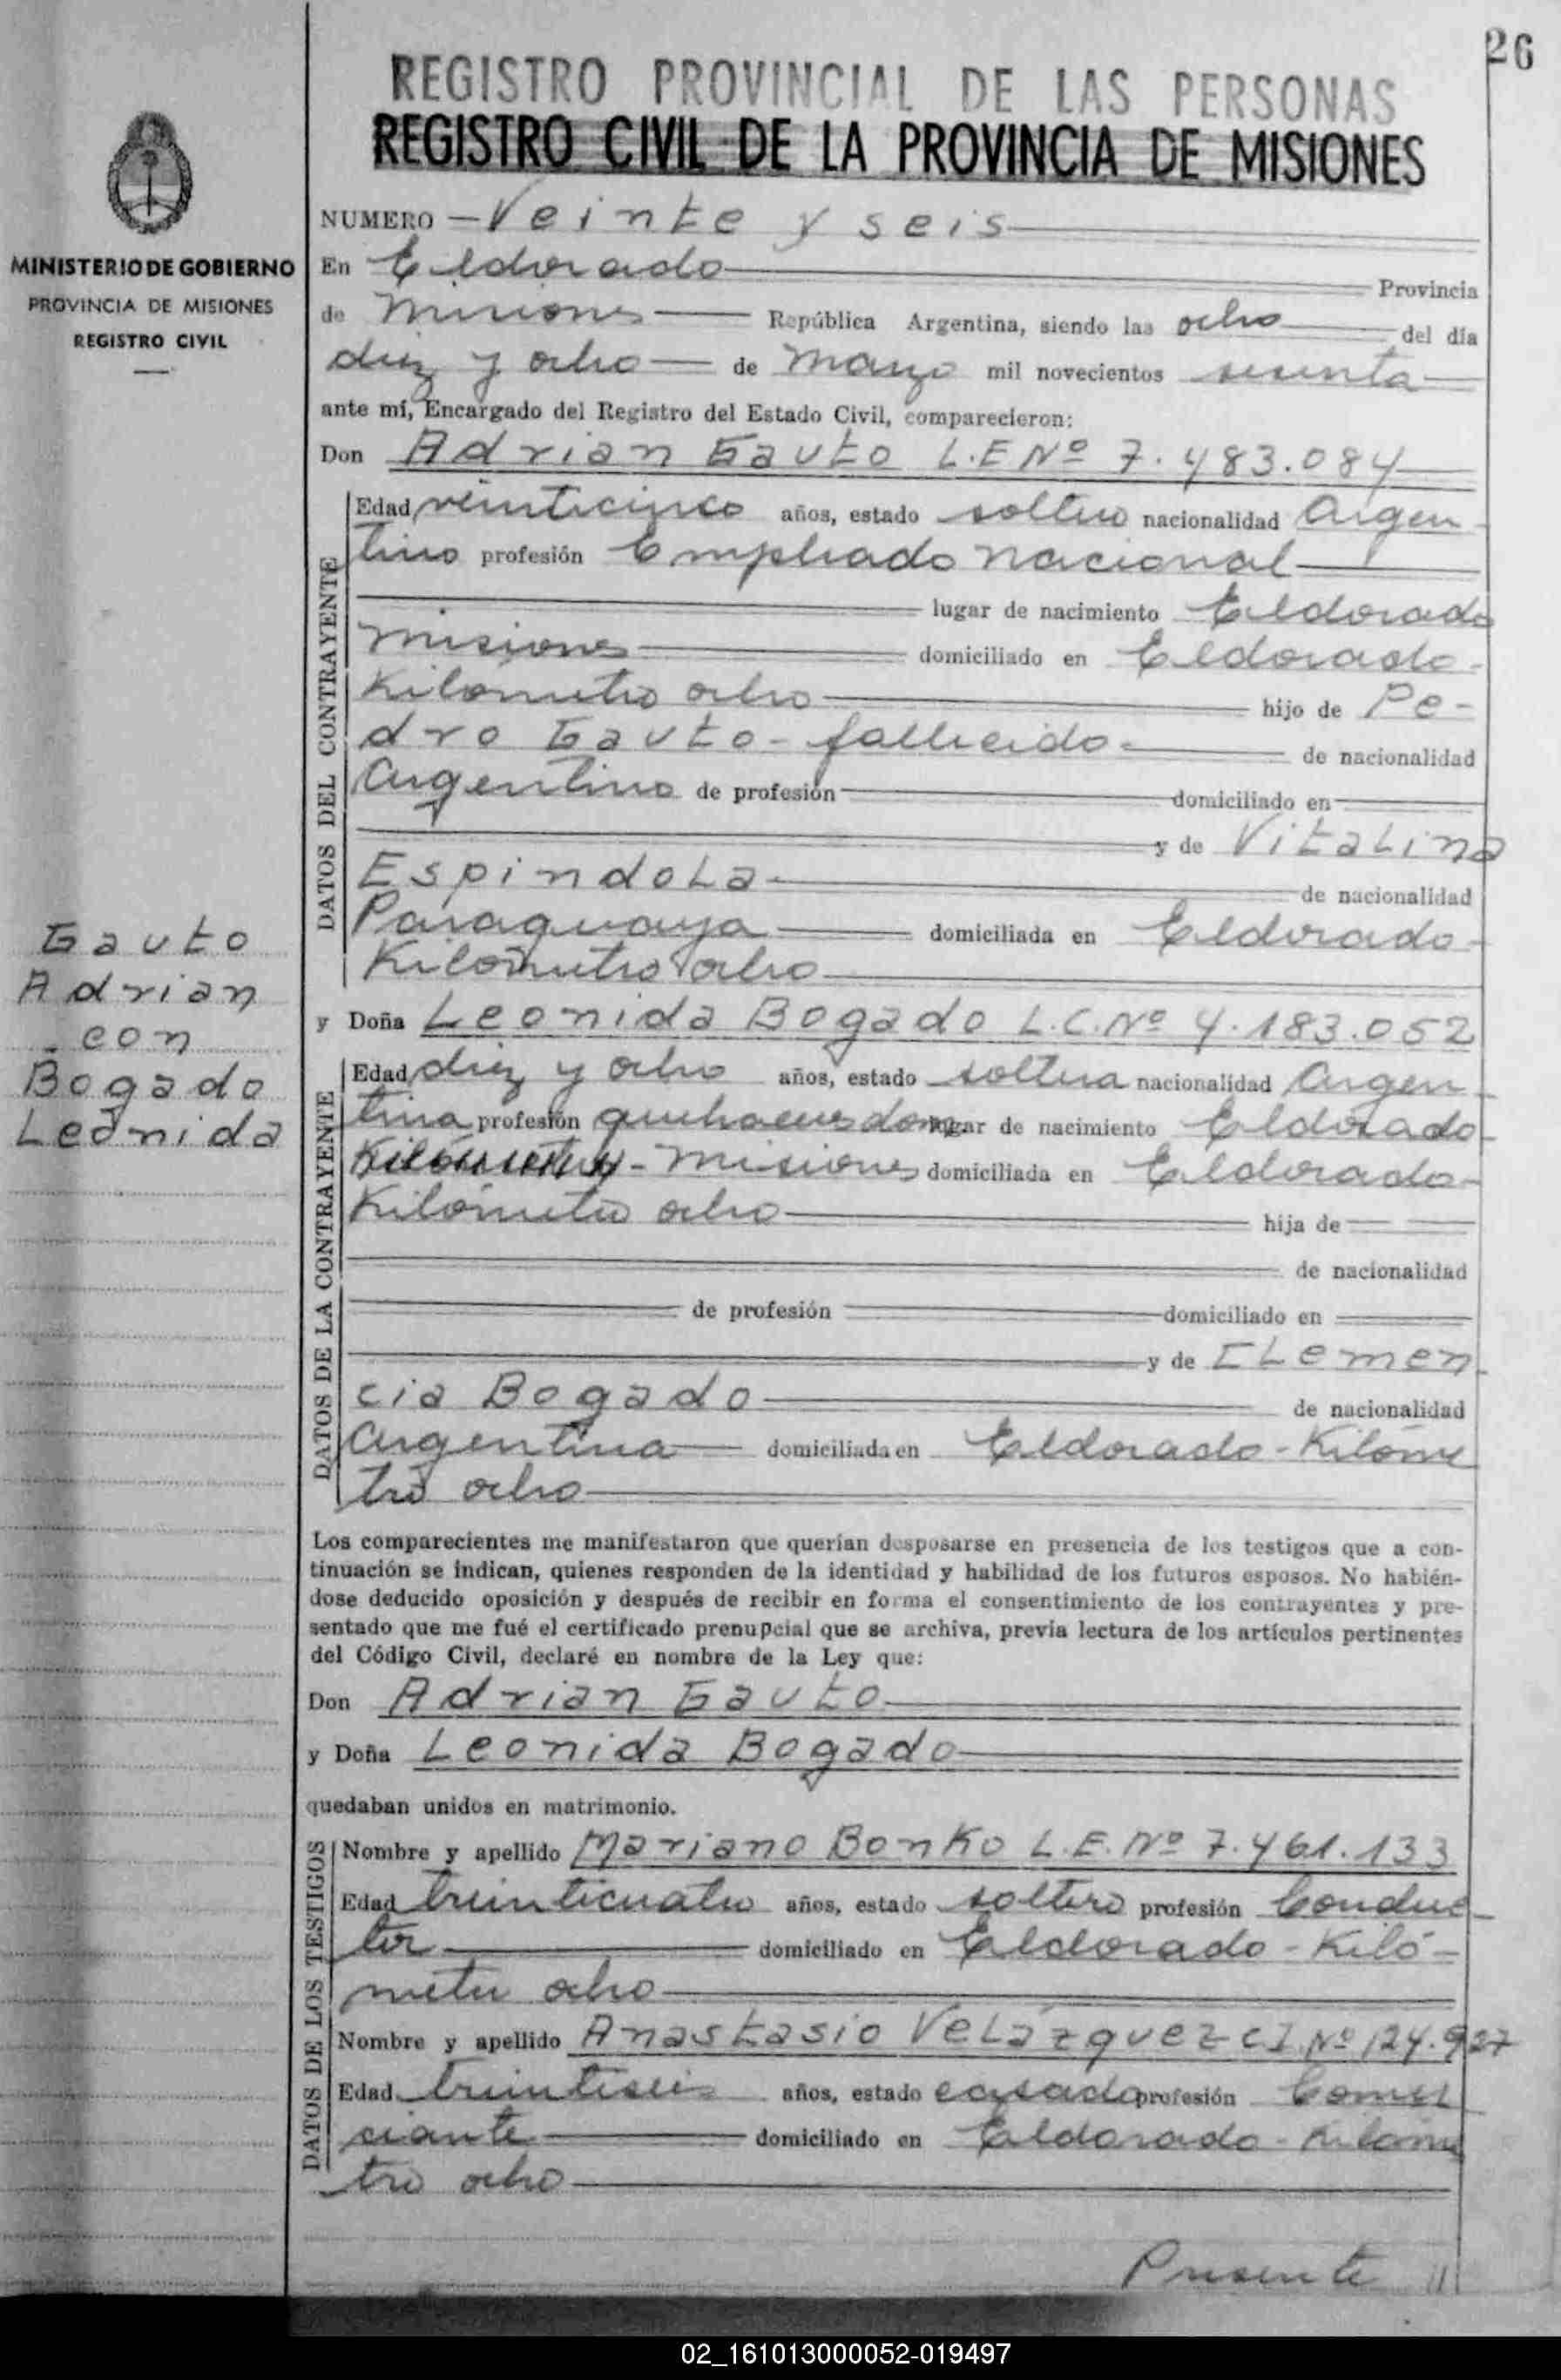 26
REGISTRO PROVINCIAL DE LAS PERSONAS
REGISTRO CIVIL DE LA PROVINCIA DE MISIONES
MINISTERIO DE GOBIERNO
PROVINCIA DE MISIONES
REGISTRO CIVIL
Gauto
Adrian
con
Bogado
Leonida
NUMERO - Veinte y seis
En Eldorado Provincia
de Misiones República Argentina, siendo las ocho del día
diez y ocho de Marzo mil novecientos sesenta
ante mí, Encargado del Registro del Estado Civil, comparecieron:
Don Adrian Gauto L.E Nº 7.483.084
DATOS DEL CONTRAYENTE
Edad veinticinco años, estado soltero nacionalidad Argen
tino profesión Empleado Nacional
lugar de nacimiento Eldorado
Misiones domiciliado en Eldorado-
Kilómetro ocho hijo de Pe-
dro Gauto - fallecido - de nacionalidad
Argentino de profesión domiciliado en
y de Vitalina
Espindola de nacionalidad
Paraguaya domiciliada en Eldorado-
Kilómetro ocho
y Doña Leonida Bogado L.C.Nº 4.183.052
DATOS DE LA CONTRAYENTE
Edad diez y ocho años, estado soltera nacionalidad Argen
tina profesión quehaceres dom lugar de nacimiento Eldorado
- Misiones domiciliada en Eldorado-
Kilómetro ocho hija de
de nacionalidad
de profesión domiciliado en
y de Clemen
cia Bogado de nacionalidad
Argentina domiciliada en Eldorado - Kilóme
tro ocho
Los comparecientes me manifestaron que querían desposarse en presencia de los testigos que a con-
tinuación se indican, quienes responden de la identidad y habilidad de los futuros esposos. No habién-
dose deducido oposición y después de recibir en forma el consentimiento de los contrayentes y pre-
sentado que me fué el certificado prenupcial que se archiva, previa lectura de los artículos pertinentes
del Código Civil, declaré en nombre de la Ley que:
Don Adrian Gauto
y Doña Leonida Bogado
quedaban unidos en matrimonio.
DATOS DE LOS TESTIGOS
Nombre y apellido Mariano Bonko L.E.Nº 7.461.133
Edad treinticuatro años, estado soltero profesión Conduc
tor domiciliado en Eldorado - Kiló-
metro ocho
Nombre y apellido Anastasio Velázquez C I.Nº 124.927
Edad treintiseis años, estado casado profesión Comer
ciante domiciliado en Eldorado - Kilóme
tro ocho
Presente //
02_161013000052-019497